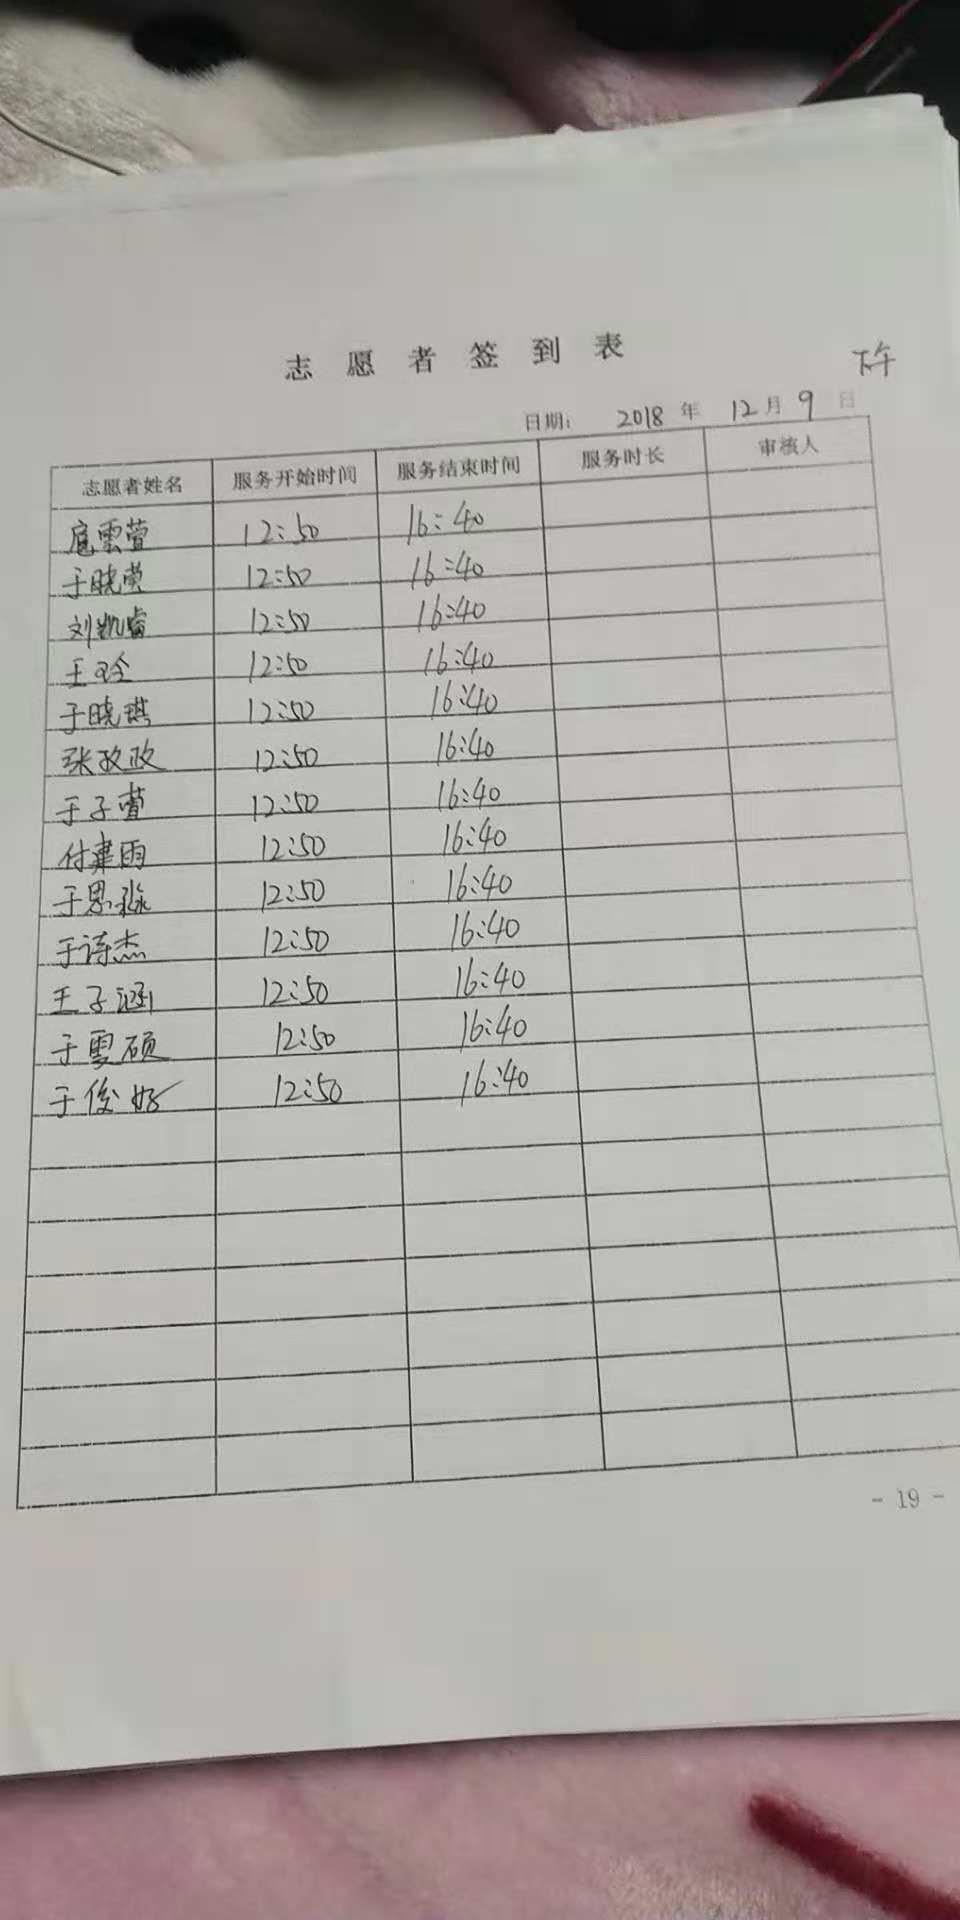 志愿者签到表
下午
日期: 2018年12月9日
志愿者姓名 服务开始时间 服务结束时间 服务时长 审核人
扈雲萱 12:50 16:40
于晓萤 12:50 16:40
刘凯睿 12:50 16:40
王玲 12:50 16:40
于晓琪 12:50 16:40
张政政 12:50 16:40
于子萱 12:50 16:40
付肃雨 12:50 16:40
于思淼 12:50 16:40
于诗杰 12:50 16:40
王子涵 12:50 16:40
于雯硕 12:50 16:40
于俊好 12:50 16:40
- 19 -